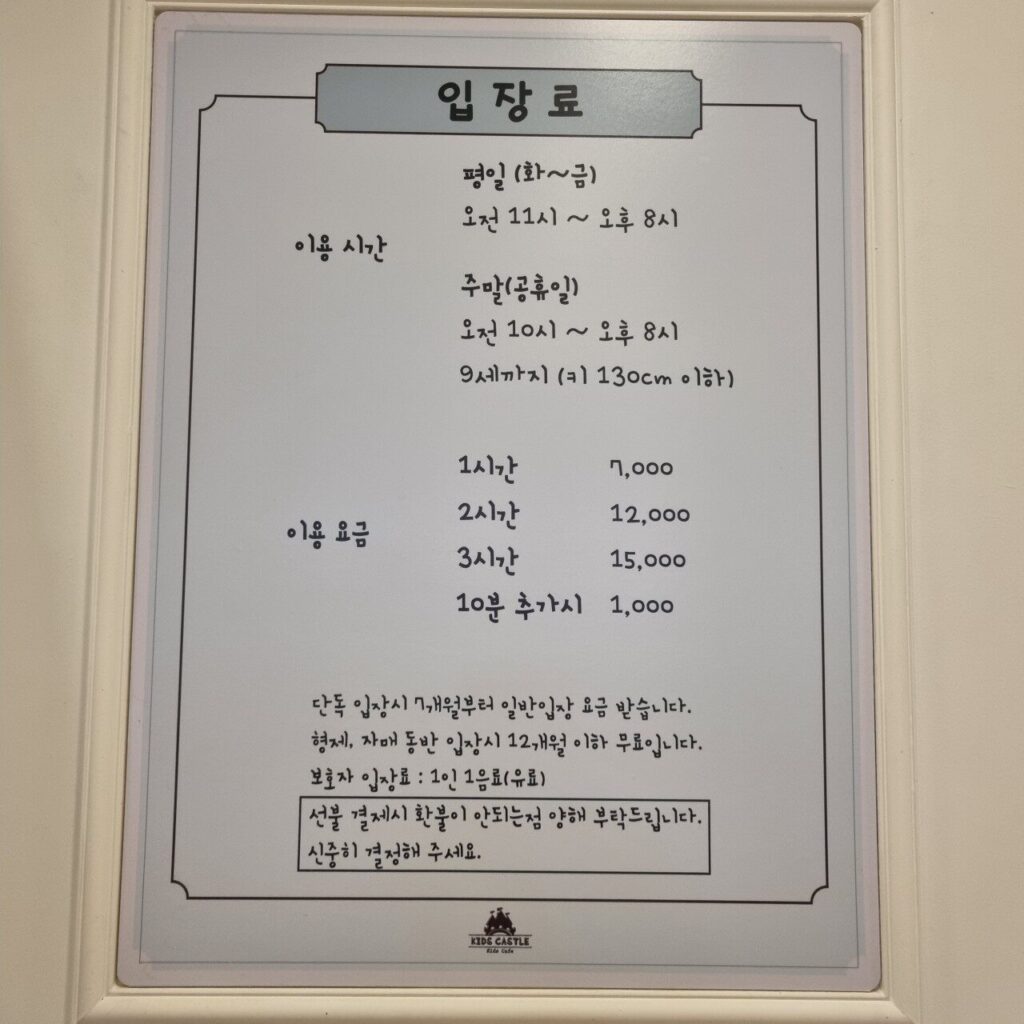 입장료
이용 시간
평일 (화~금)
오전 11시 ~ 오후 8시
주말(공휴일)
오전 10시 ~ 오후 8시
9세까지 (키 130cm 이하)
이용 요금
1시간 7,000
2시간 12,000
3시간 15,000
10분 추가시 1,000
단독 입장시 7개월부터 일반입장 요금 받습니다.
형제, 자매 동반 입장시 12개월 이하 무료입니다.
보호자 입장료 : 1인 1음료(유료)
선불 결제시 환불이 안되는점 양해 부탁드립니다.
신중히 결정해 주세요.
KIDS CASTLE
Kids Cafe